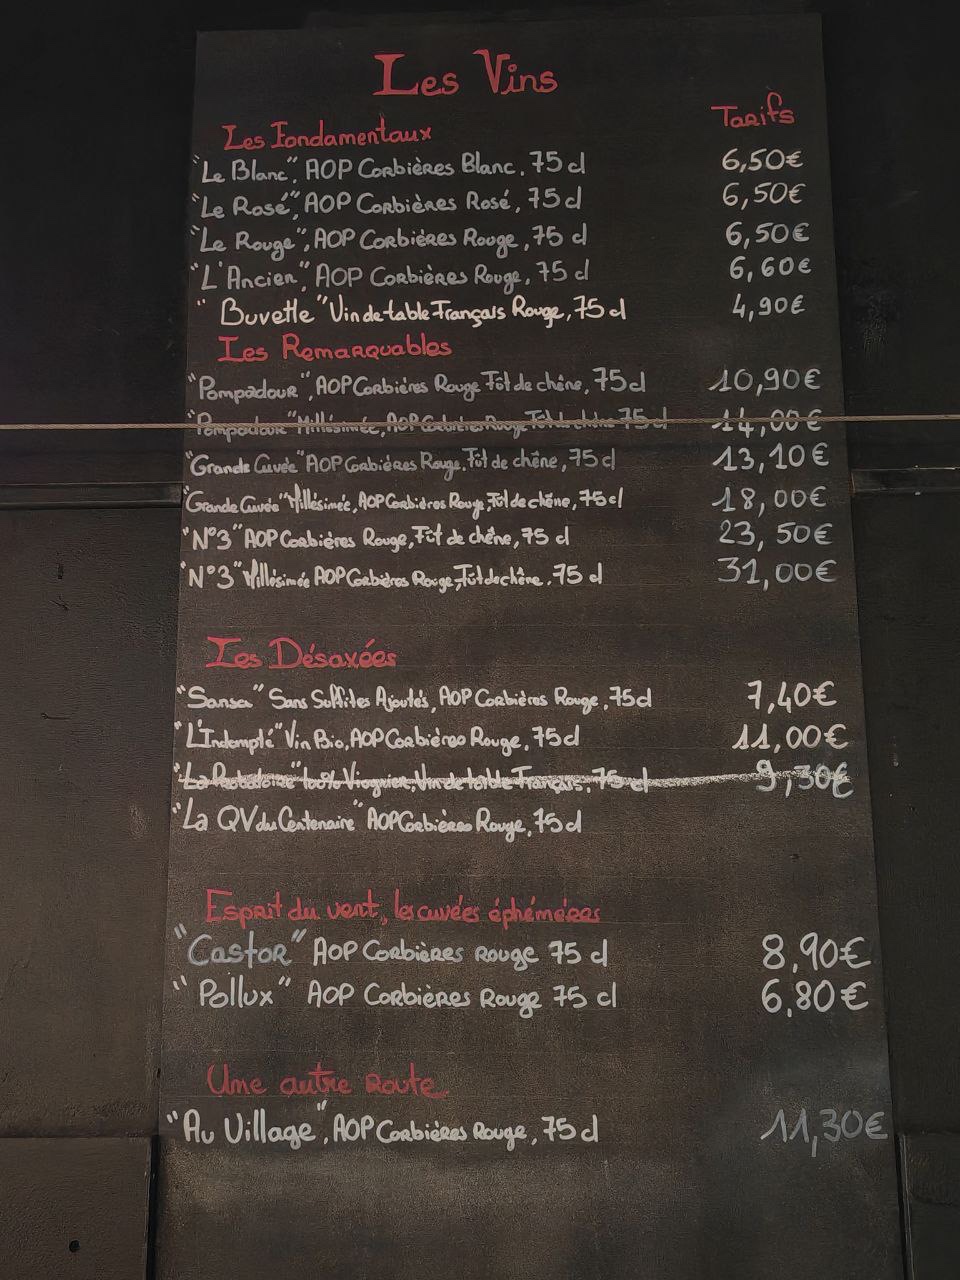 Les Vins
Tarifs
Les Fondamentaux
"Le Blanc", AOP Corbières Blanc, 75 cl 6,50€
"Le Rosé", AOP Corbières Rosé, 75 cl 6,50€
"Le Rouge", AOP Corbières Rouge, 75 cl 6,50€
"L'Ancien", AOP Corbières Rouge, 75 cl 6,60€
"Buvette" Vin de table Français Rouge, 75 cl 4,90€
Les Remarquables
"Pompadour", AOP Corbières Rouge Fût de chêne, 75 cl 10,90€
"Pompadour" Millésimée, AOP Corbières Rouge Fût de chêne 75 cl 14,00€
"Grande Cuvée" AOP Corbières Rouge, Fût de chêne, 75 cl 13,10€
"Grande Cuvée" Millésimée, AOP Corbières Rouge, Fût de chêne, 75 cl 18,00€
"N°3" AOP Corbières Rouge, Fût de chêne, 75 cl 23,50€
"N°3" Millésimée AOP Corbières Rouge, Fût de chêne, 75 cl 31,00€
Les Désaxées
"Sansa" Sans Sulfites Ajoutés, AOP Corbières Rouge, 75 cl 7,40€
"L'Indompté" Vin Bio, AOP Corbières Rouge, 75 cl 11,00€
"La 100% Viognier, Vin de table Français, 75 cl 9,30€
"La QV du Centenaire" AOP Corbières Rouge, 75 cl
Esprit du vent, les cuvées éphémères
"Castor" AOP Corbières Rouge 75 cl 8,90€
"Pollux" AOP Corbières Rouge 75 cl 6,80€
Une autre Route
"Au Village", AOP Corbières Rouge, 75 cl 11,30€